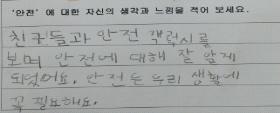 '안전'에 대한 자신의 생각과 느낌을 적어 보세요.
친구들과 안전 갤럭시를
보며 안전에 대해 잘 알게
되었어요. 안전은 우리 생활에
꼭 필요해요.